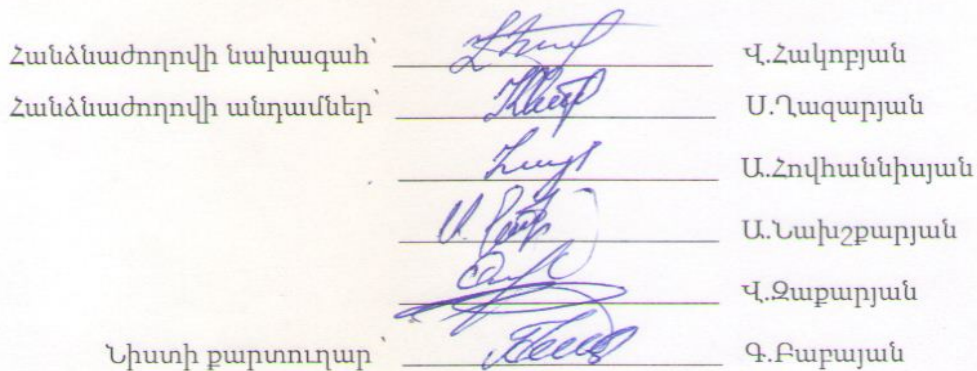 Հանձնաժողովի նախագահ՝ Վ.Հակոբյան
Հանձնաժողովի անդամներ՝ Ս.Ղազարյան
Ա.Հովհաննիսյան
Ա.Նախշքարյան
Վ.Զաքարյան
Նիստի քարտուղար՝ Գ.Բաբայան